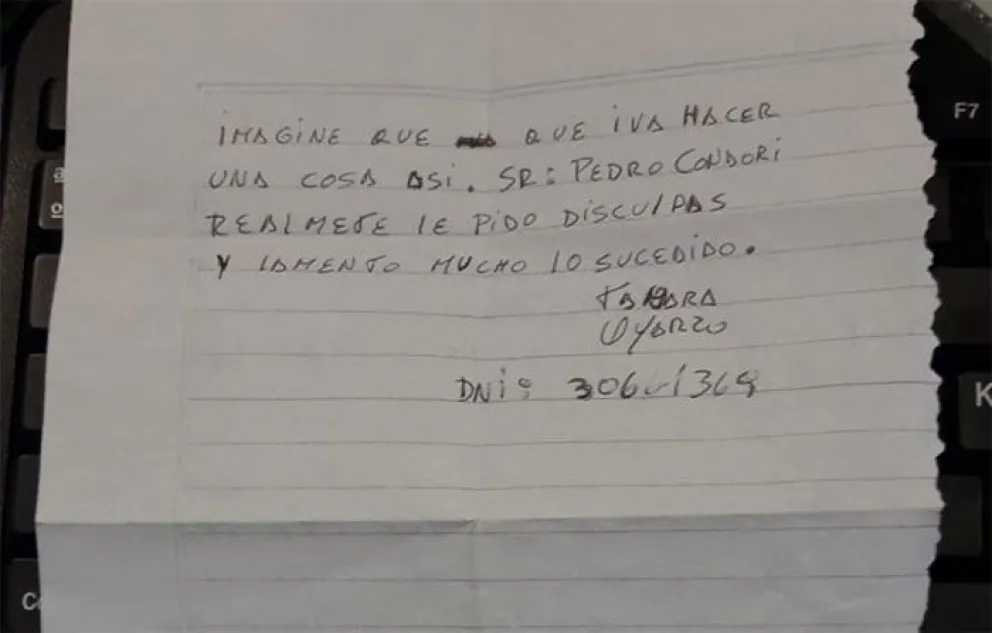 IMAGINE QUE QUE IVA HACER
UNA COSA ASI. SR: PEDRO CONDORI
REALMETE LE PIDO DISCULPAS
Y LAMENTO MUCHO LO SUCEDIDO.
TAMARA
OYARZO
DNI:
F7
K